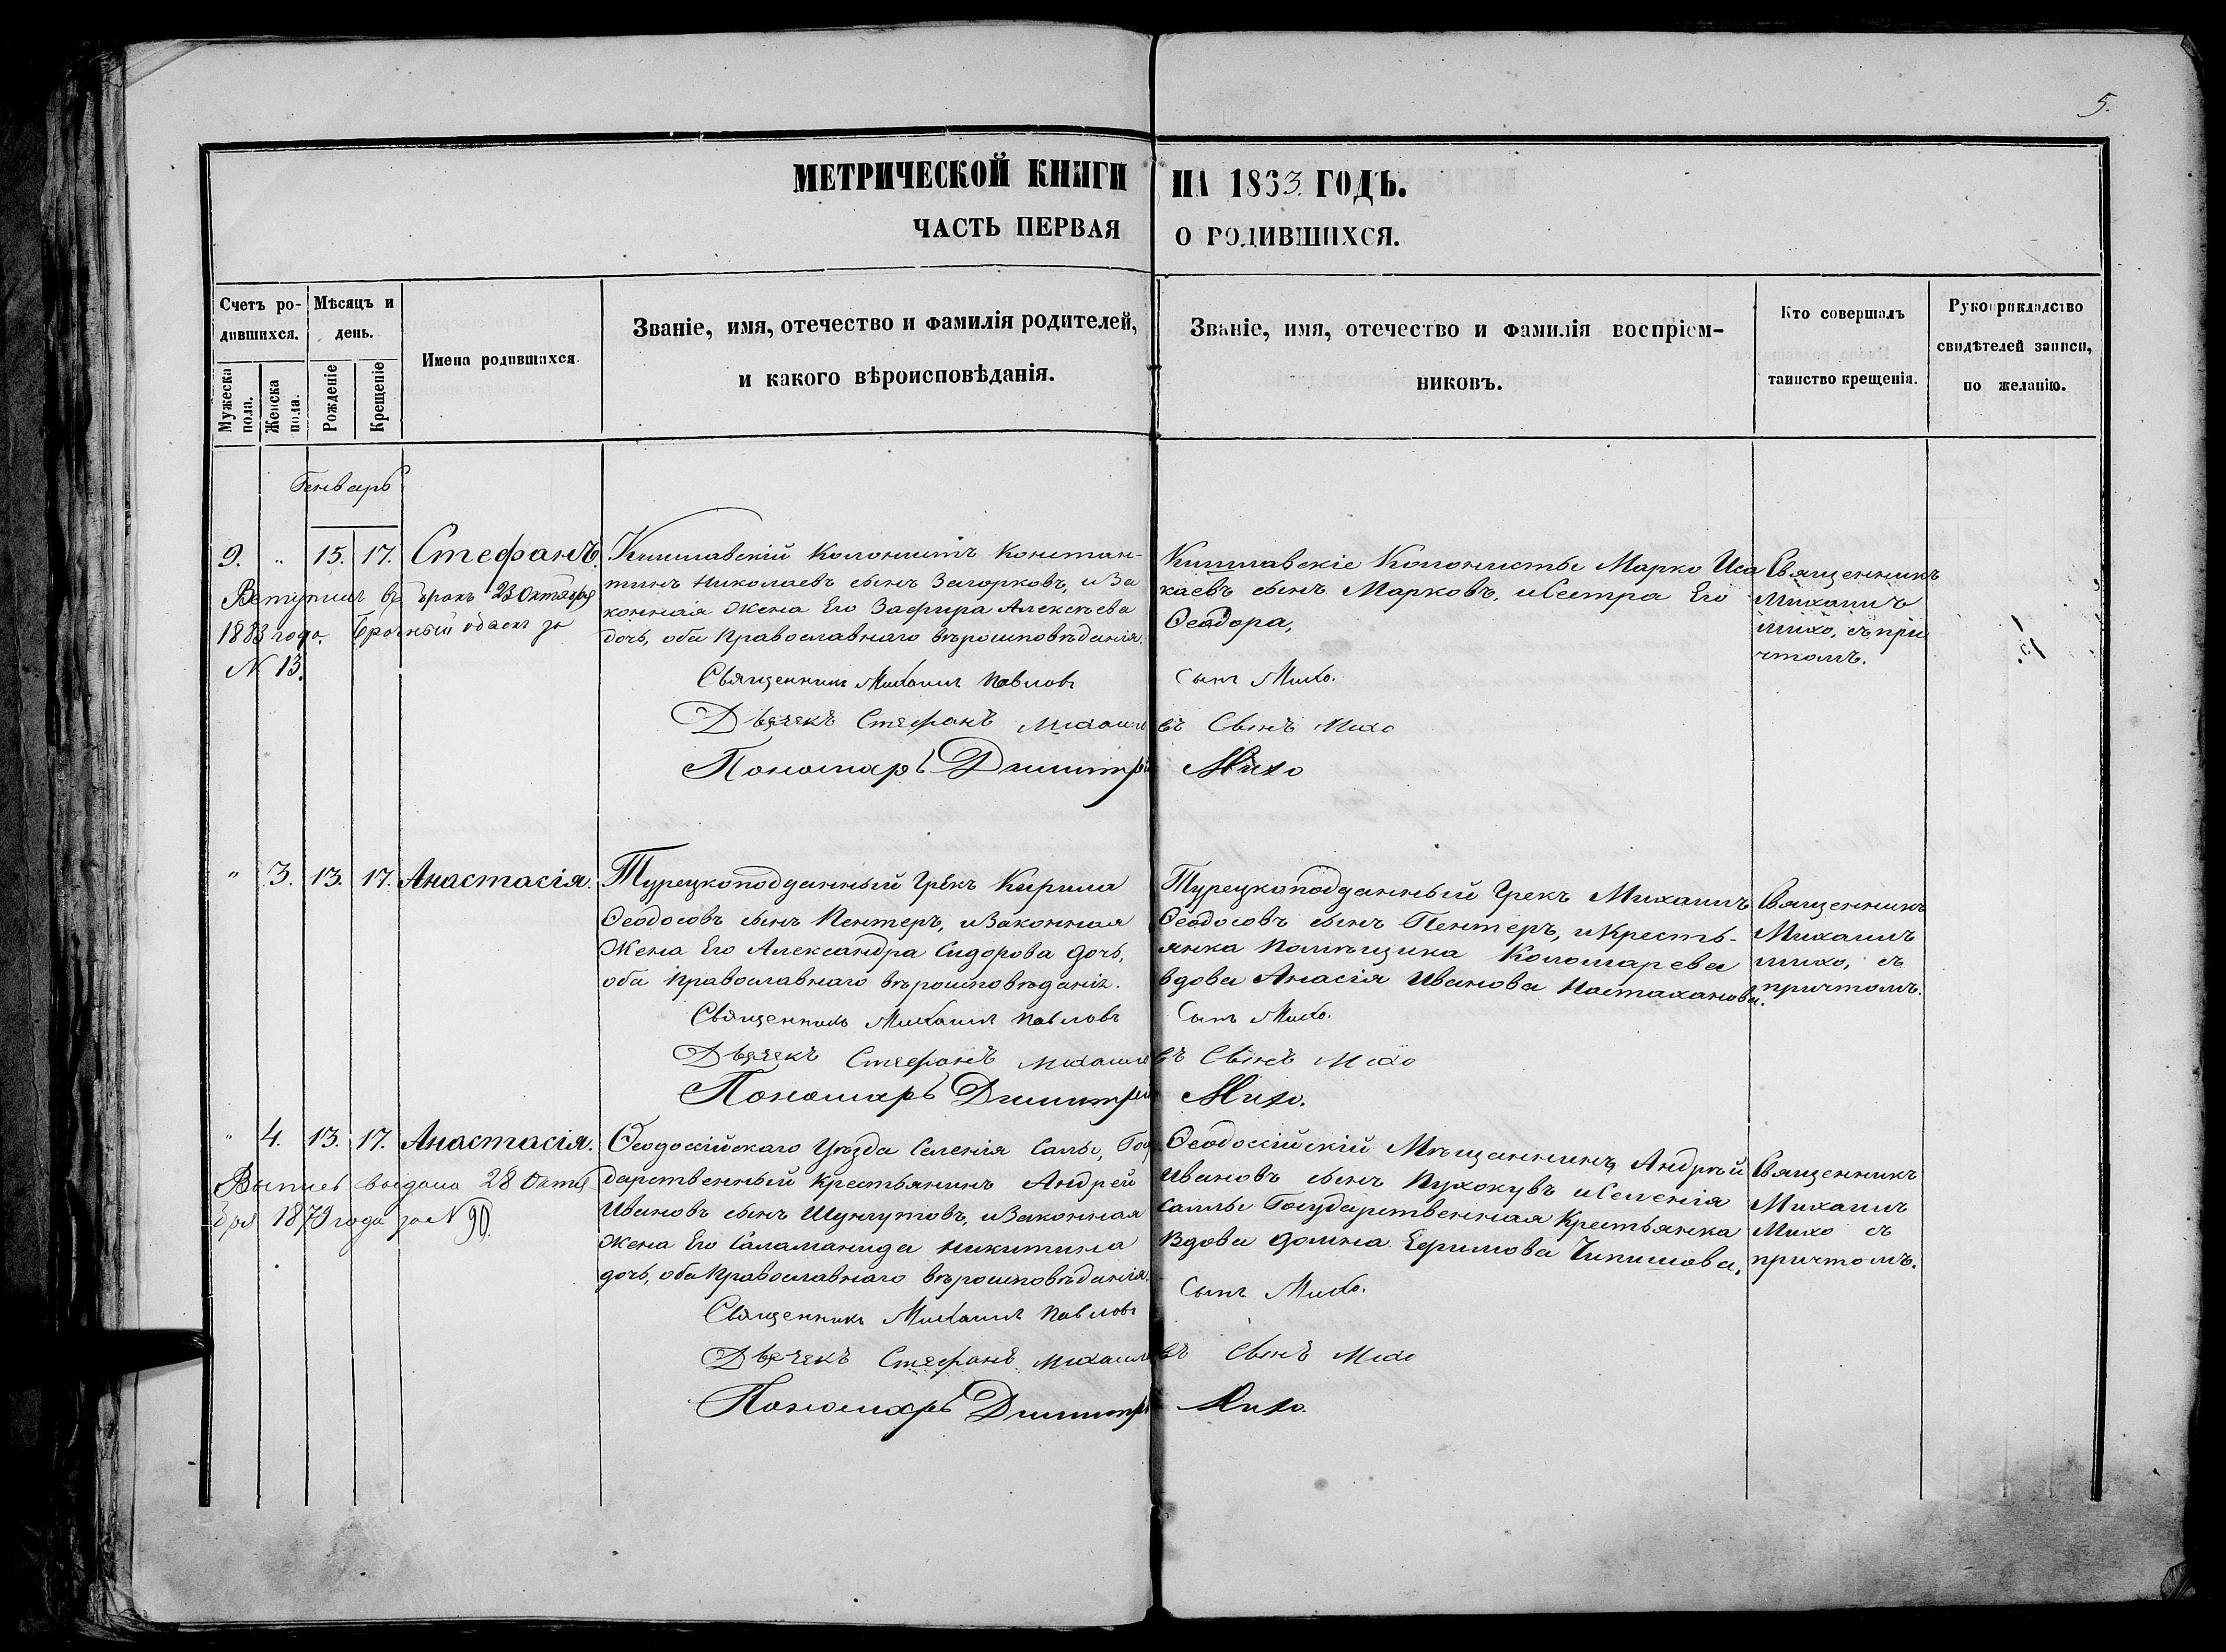 5.
МЕТРИЧЕСКОЙ КНИГИ НА 1863. ГОДЪ.
ЧАСТЬ ПЕРВАЯ О РОДИВШИХСЯ.
Счетъ ро-
дившихся.
Мужеска пола.
Женска пола.
Мѣсяцъ и
день.
Рожденіе
Крещеніе
Имена родившихся.
Званіе, имя, отечество и фамилія родителей,
и какого вѣроисповѣданія.
Званіе, имя, отечество и фамилія воспріем-
никовъ.
Кто совершалъ
таинство крещенія.
Рукоприкладство
свидѣтелей записи,
по желанію.
Генварь
9. " 15. 17. Стефанъ.
Вступилъ въ бракъ 23 Октября
1883 года. Брачный обыскъ за
N 13.
Кишлавскій Колонистъ Констан-
тинъ Николаевъ сынъ Загорковъ, и За
конная Жена Его Зафира Алексѣева
дочь, оба Православнаго вѣроисповѣданія.
Кишлавскіе Колонисты Марко Иса
каевъ сынъ Марковъ, и Сестра Его
Ѳеодора,
Священникъ
Михаилъ
Михо, съ при
чтомъ.
Священникъ Михаилъ Павловъ Сынъ Михо.
Дьячекъ Стефанъ Михаиловъ Сынъ Михо
Пономарь Димитрій Михо
" 3. 13. 17. Анастасія.
Турецкоподданный Грекъ Кирила
Ѳеодосовъ сынъ Пентеръ, и Законная
Жена Его Александра Сидорова дочь,
оба Православнаго вѣроисповѣданія.
Турецкоподданный Грекъ Михаилъ
Ѳеодосовъ сынъ Пентеръ, и Кресть-
янка Помѣщика Коломарева
вдова Анасія Иванова
Священникъ
Михаилъ
Михо, съ
причтомъ.
Священникъ Михаилъ Павловъ Сынъ Михо.
Дьячекъ Стефанъ Михаиловъ Сынъ Михо
Пономарь Димитрій Михо.
" 4. 13. 17. Анастасія.
Выпись выдана 28 Октя
бря 1879 года за N 90.
Ѳеодосійскаго Уѣзда Селенія Салы, Госу
дарственный Крестьянинъ Андрей
Ивановъ сынъ Шунгутовъ, и Законная
Жена Его Саламанида Никитина
дочь, оба Православнаго вѣроисповѣданія.
Ѳеодосійскій Мѣщанинъ Андрѣй
Ивановъ сынъ Пухокувъ и Селенія
Саллы Государственная Крестьянка
Вдова Домна Ефимова Чипишова,
Священникъ
Михаилъ
Михо съ
причтомъ.
Священникъ Михаилъ Павловъ Сынъ Михо.
Дьячекъ Стефанъ Михаиловъ Сынъ Михо
Пономарь Димитрій Михо.